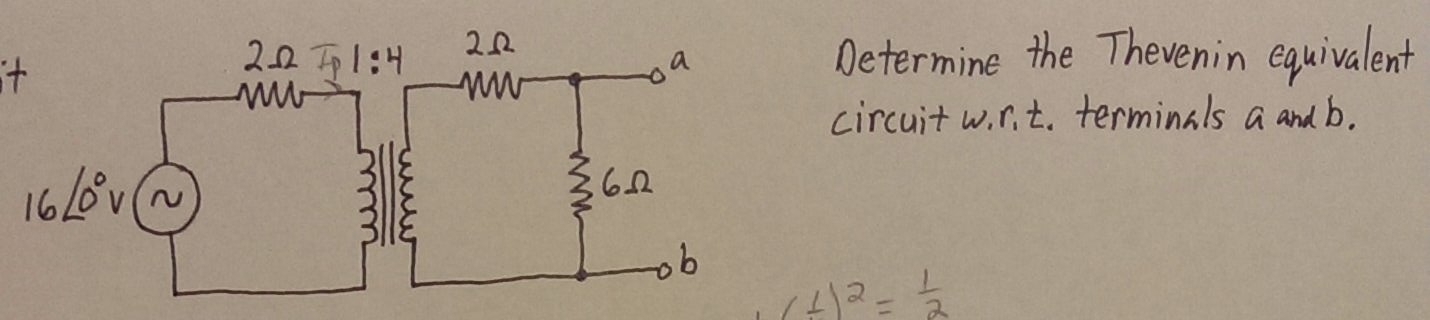 it
2Ω Ip 1:4 2Ω
a
16∠0° V
~
6Ω
b
Determine the Thevenin equivalent
circuit w.r.t. terminals a and b.
)² = 1/2